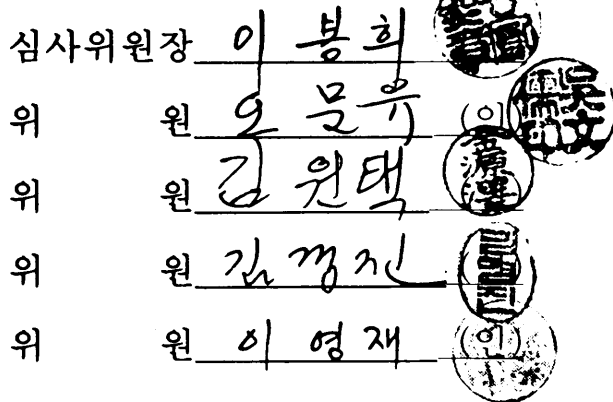 심사위원장 이 봉 희
위 원 오 문 유 (인)
위 원 김 원 택
위 원 김 명 진
위 원 이 영 재 (인)